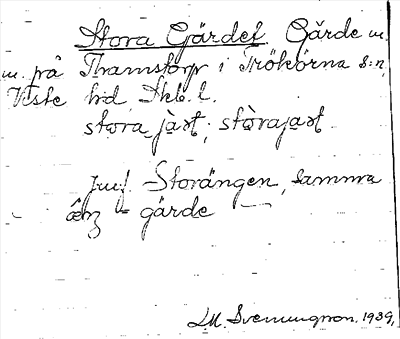 Stora Gärdet. Gärde m.
m. på Thamstorp i Trökörna s:n,
Viste hd, Skb. l.
stora jàst, stòrajast
jmf. Storängen, samma
gärde
L.M. Svenungsson. 1939,